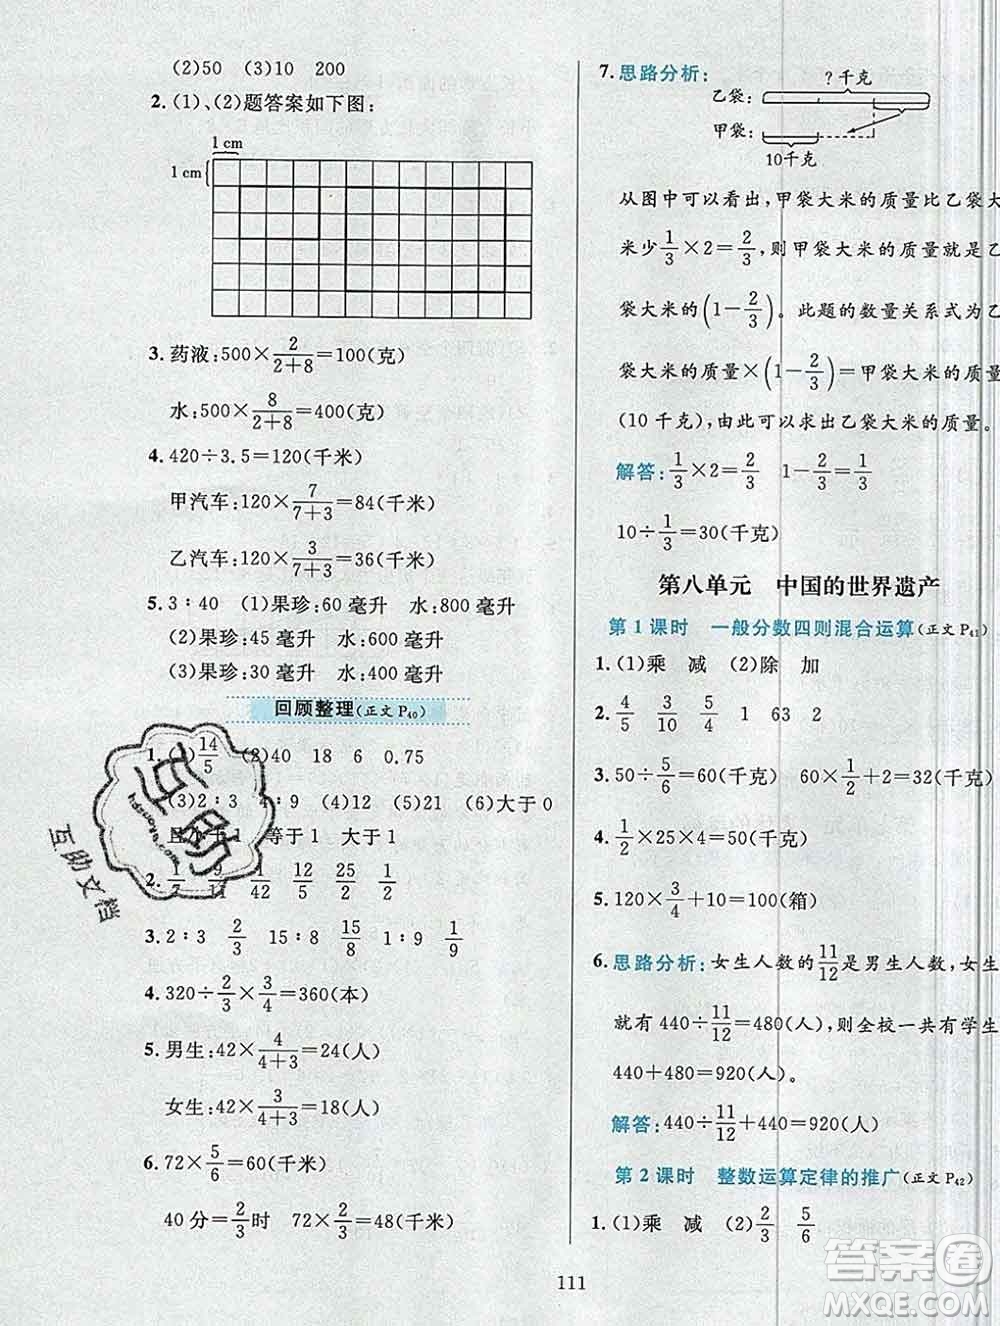 (2)50 (3)10 200
2. (1)、(2)题答案如下图:
1 cm
1 cm
3. 药液:500×2/(2+8)=100(克)
水:500×8/(2+8)=400(克)
4. 420÷3.5=120(千米)
甲汽车:120×7/(7+3)=84(千米)
乙汽车:120×3/(7+3)=36(千米)
5. 3∶40 (1)果珍:60 毫升 水:800 毫升
(2)果珍:45 毫升 水:600 毫升
(3)果珍:30 毫升 水:400 毫升
回顾整理(正文 P40)
1. (1)14/5 (2)40 18 6 0.75
(3)2∶3 4∶9 (4)12 (5)21 (6)大于 0
且小于 1 等于 1 大于 1
2. 1/7 9/11 1/42 3/25 1/2 1/2
3. 2∶3 2/3 15∶8 15/8 1∶9 1/9
4. 320÷2/3×3/4=360(本)
5. 男生:42×4/(4+3)=24(人)
女生:42×3/(4+3)=18(人)
6. 72×5/6=60(千米)
40 分=2/3时 72×2/3=48(千米)
7. 思路分析:
?千克
乙袋:
甲袋:
10千克
从图中可以看出,甲袋大米的质量比乙袋大
米少1/3×2=2/3,则甲袋大米的质量就是乙
袋大米的(1-2/3)。此题的数量关系式为乙
袋大米的质量×(1-2/3)=甲袋大米的质量
(10 千克),由此可以求出乙袋大米的质量。
解答:1/3×2=2/3 1-2/3=1/3
10÷1/3=30(千克)
第八单元 中国的世界遗产
第 1 课时 一般分数四则混合运算(正文 P41)
1. (1)乘 减 (2)除 加
2. 4/5 3/10 2/5 1 63 2
3. 50÷5/6=60(千克) 60×1/2+2=32(千克)
4. 1/2×25×4=50(千克)
5. 120×3/4+10=100(箱)
6. 思路分析:女生人数的11/12是男生人数,女生
就有 440÷11/12=480(人),则全校一共有学生
440+480=920(人)。
解答:440÷11/12+440=920(人)
第 2 课时 整数运算定律的推广(正文 P42)
1. (1)乘 减 (2)2/3 5/6
111
互助
hdzuoye.com
互助文档
答案圈
MXQE.COM